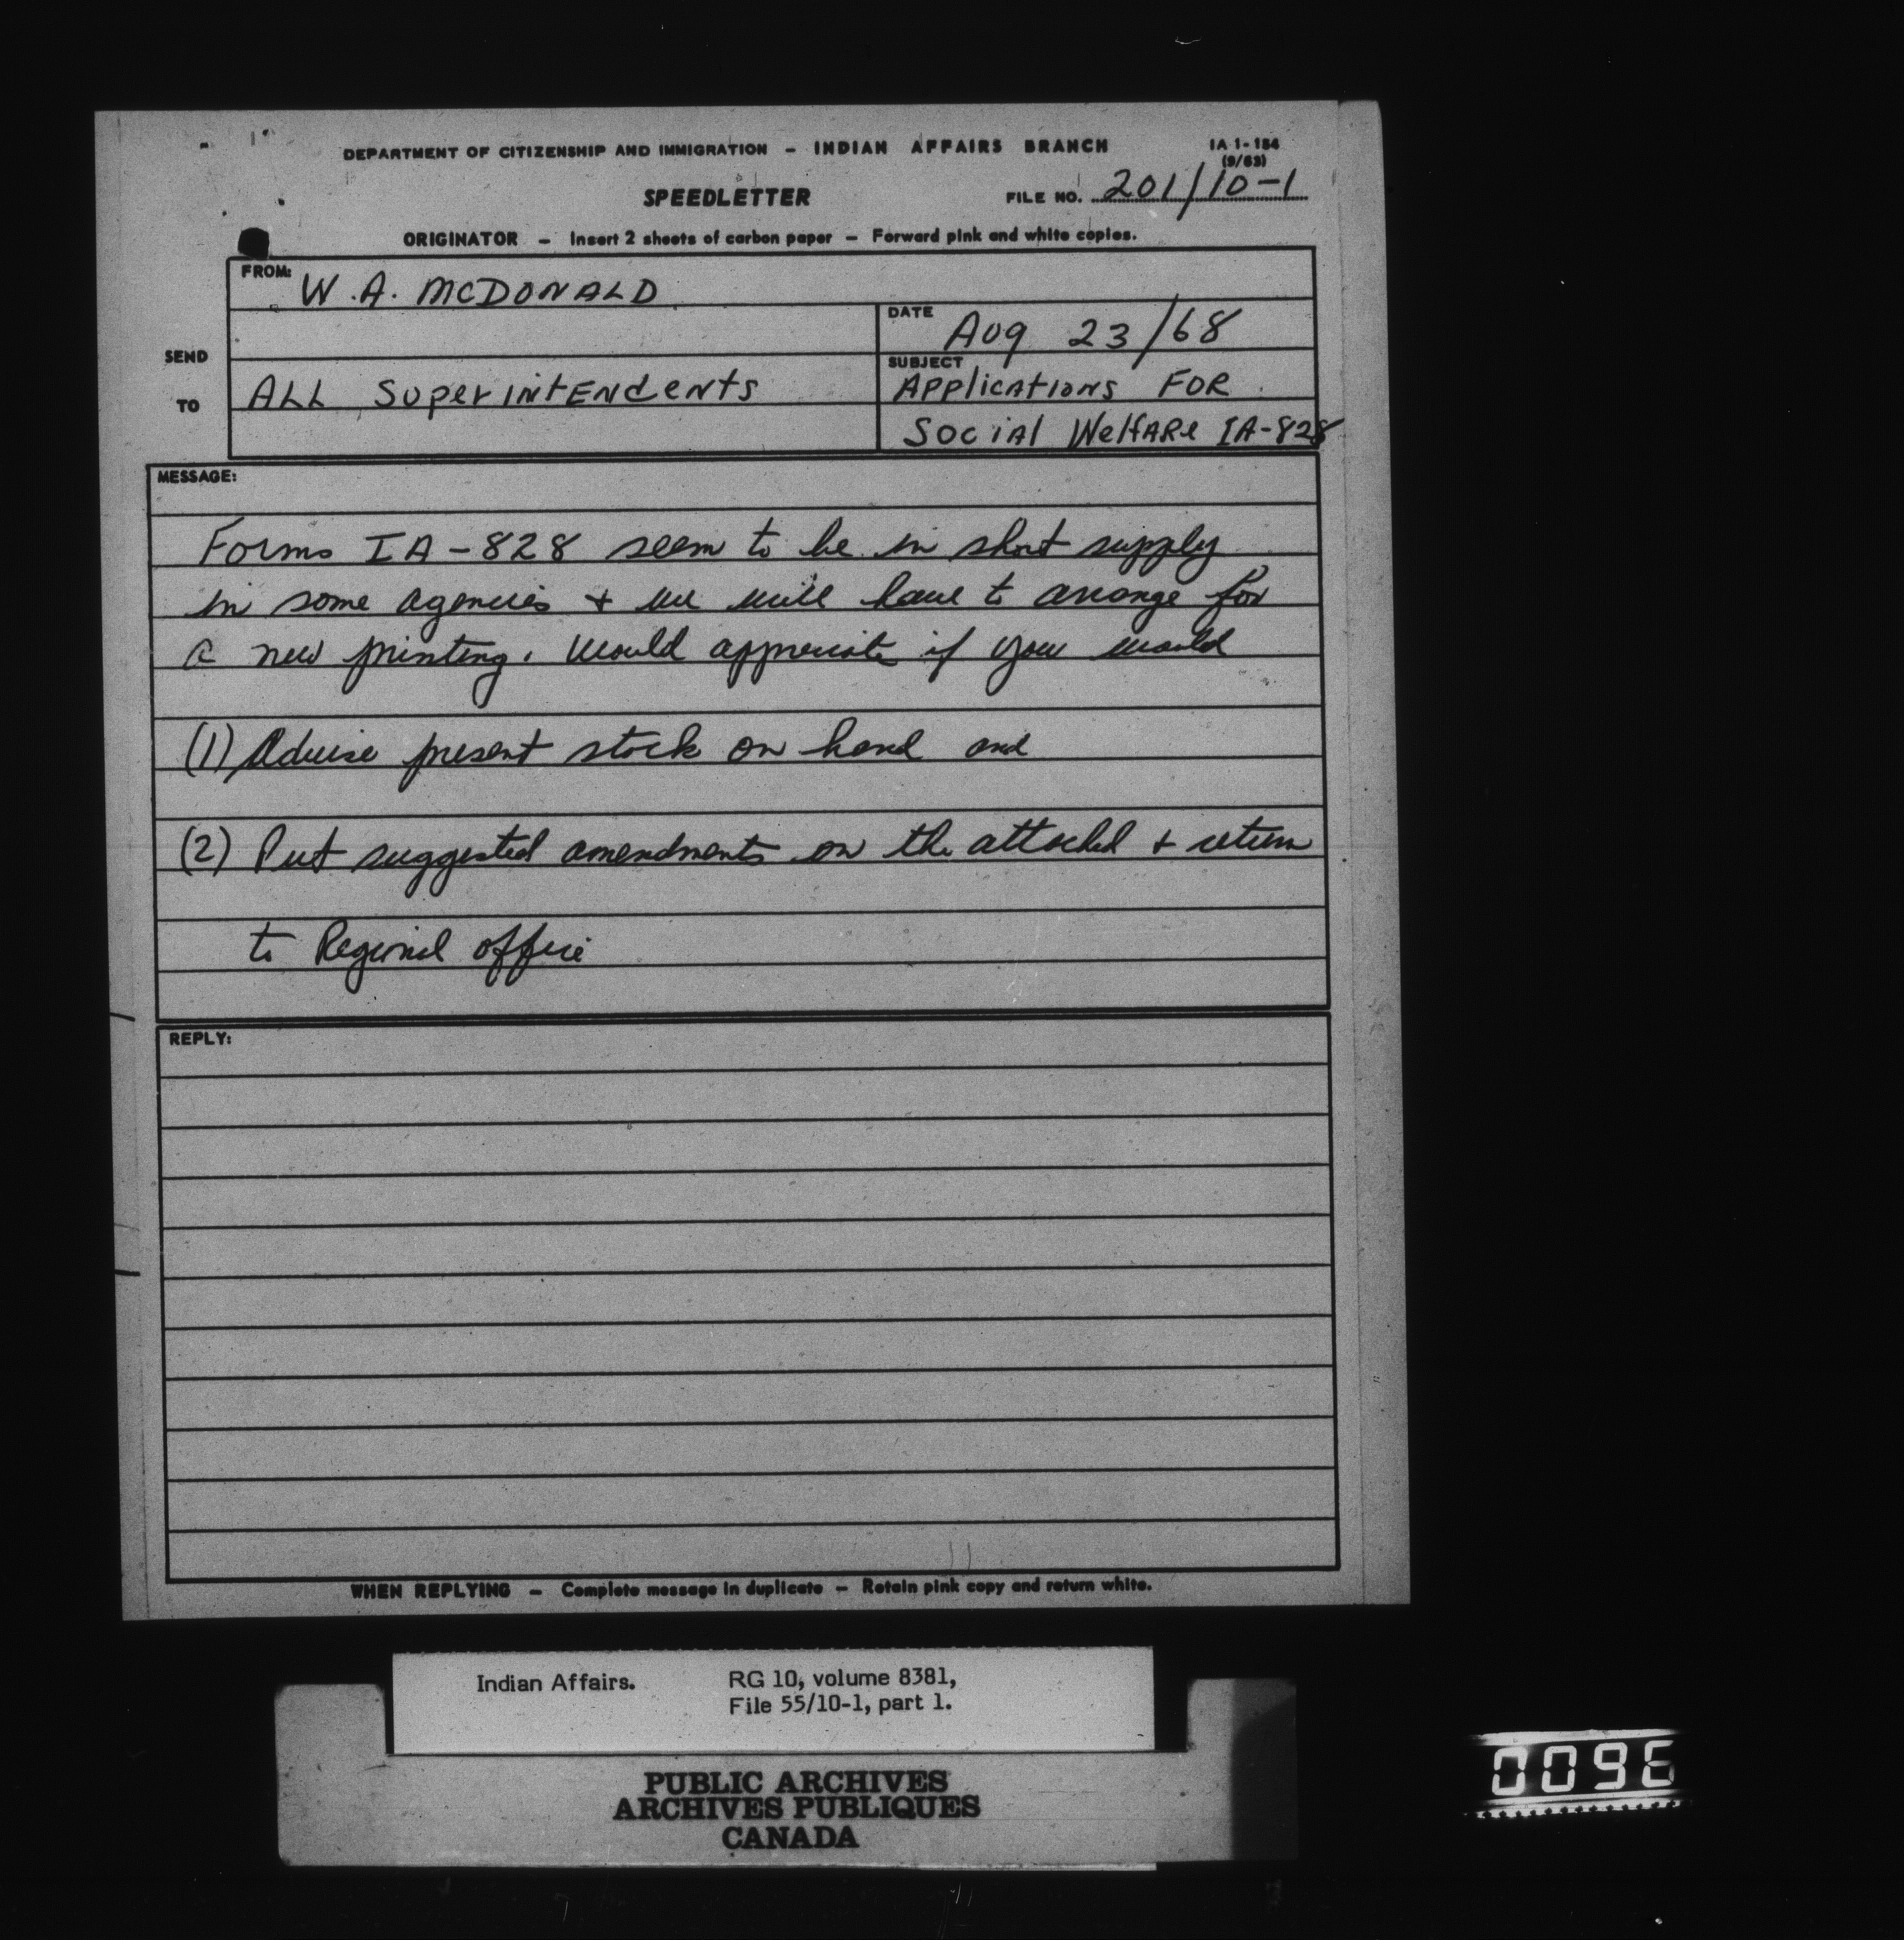 DEPARTMENT OF CITIZENSHIP AND IMMIGRATION - INDIAN AFFAIRS BRANCH
IA 1-184
(9/63)
SPEEDLETTER
FILE NO. 201/10-1
ORIGINATOR - Insert 2 sheets of carbon paper - Forward pink and white copies.
FROM: W.A. McDONALD
DATE Aug 23/68
SEND TO
ALL SuperINtENdeNts
SUBJECT
Applications FOR
Social Welfare IA-828
MESSAGE:
Forms IA-828 seem to be in short supply
in some agencies + we will have to arrange for
a new printing. Would appreciate if you would
(1) Advise present stock on hand and
(2) Put suggested amendments on the attached + return
to Regional office
REPLY:
WHEN REPLYING - Complete message in duplicate - Retain pink copy and return white.
Indian Affairs. RG 10, volume 8381,
File 55/10-1, part 1.
PUBLIC ARCHIVES
ARCHIVES PUBLIQUES
CANADA